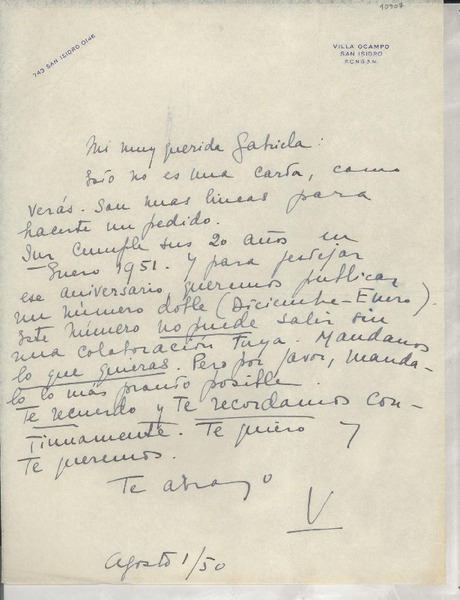 10907
743 SAN ISIDRO 0146
VILLA OCAMPO
SAN ISIDRO
F.C.N.G.B.M.
Mi muy querida Gabriela:
Esto no es una carta, como
verás. Son unas lineas para
hacerte un pedido.
Sur cumple sus 20 años en
Enero 1951. Y para festejar
ese aniversario queremos publicar
un número doble (Diciembre-Enero).
Este número no puede salir sin
una colaboración tuya. Mandanos
lo que quieras. Pero por favor, manda-
lo lo más pronto posible.
Te recuerdo y te recordamos con-
tinuamente. Te quiero y
te queremos.
Te abrazo
V
Agosto 1/50